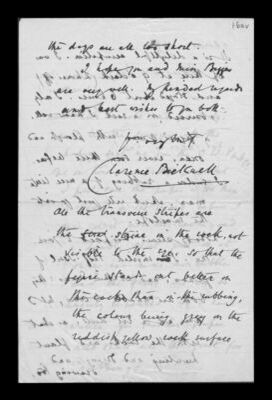 the days are all too short.
I hope you and Miss Bigger
are very well. My kindest regards
and best wishes to you both.
Clarence Bicknell
All the transverse stripes are
the striae in the rock, not
visible to the eye, so that the
figure stands out better on
the rock than in the rubbing,
the colour being grey on the
reddish yellow rock surface